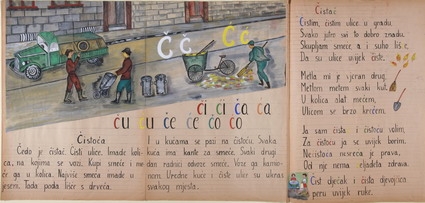 Č č
Č č
či či ča ča
ču ču če če čo čo
Čistoća
Čedo je čistač. Čisti ulice. Imade koli-
ca, na kojima se vozi. Kupi smeće i me-
će ga u kolica. Najviše smeća imade u
jeseni. Tada pada lišće s drveća.
I u kućama se pazi na čistoću. Svaka
kuća ima kante za smeće. Svaki drugi
dan radnici odvoze smeće. Voze ga kamio-
nom. Uredne kuće i čiste ulice su ukras
svakog mjesta.
Čistač
Čistim, čistim ulice u gradu.
Svako jutro svi to dobro znadu.
Skupljam smeće a i suho lišće,
Da su ulice uvijek čiste.
Metla mi je vjeran drug.
Metlom metem svaki kut.
U kolica alat mećem,
Ulicom se brzo krećem.
Ja sam čista i čistoću volim,
Za čistoću ja se uvijek borim.
Nečistoća nesreća je prava,
Od nje nema čovjek zdravlja.
Čist dječak i čista djevojčica
peru uvijek ruke.